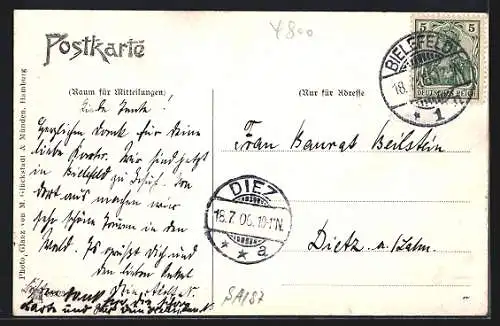 4800
Postkarte
(Raum für Mitteilungen)
(Nur für Adresse)
5 5
DEUTSCHES REICH
BIELEFELD
18.
* 1
Liebe Tante!
Herzlichen Dank für deine
liebe Karte. Wir sind jetzt
in Bielefeld zu Besuch. Von
dort aus machen wir
sehr schöne Touren in den
Wald. Es grüßt Dich und
den lieben Onkel
Frau Baurat Beilstein
Dietz a./Lahn.
DIEZ
18.7.06. 10-11N.
* * a
SA187
Photo, Glanz von M. Glückstadt & Münden, Hamburg